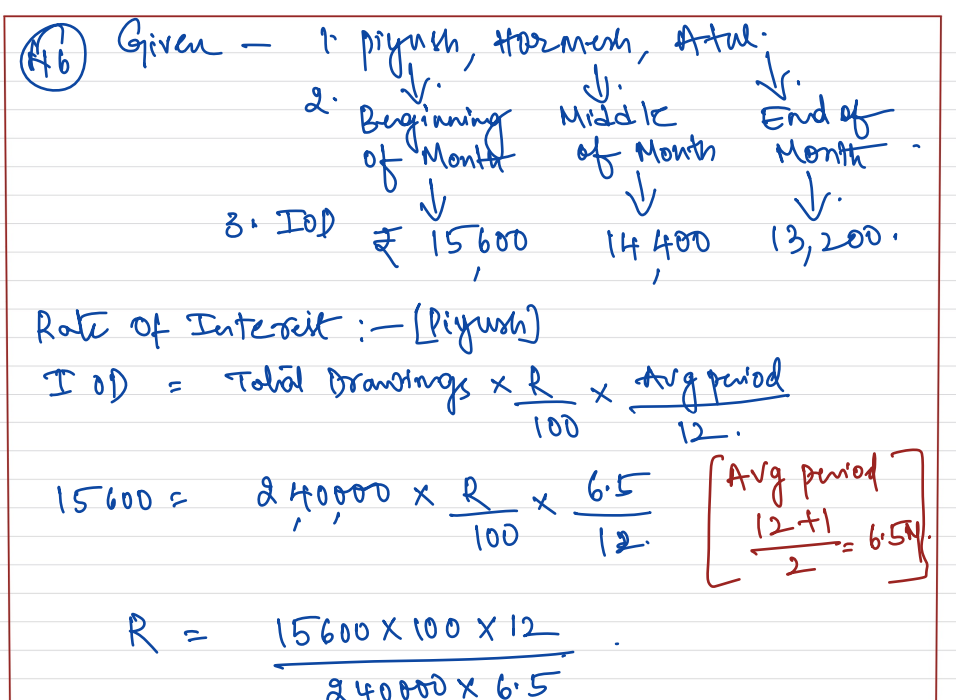 A6 Given - 1. Piyush, Harmesh, Atul.
2. Beginning Middle End of
of Month of Month Month.
3. IOD ₹ 15,600 14,400 13,200.
Rate of Interest :- [Piyush]
IOD = Total Drawings × R/100 × Avg period/12.
15600 = 2,40,000 × R/100 × 6.5/12.
[Avg period
12+1/2 = 6.5M.]
R = 15600 × 100 × 12 / 240000 × 6.5